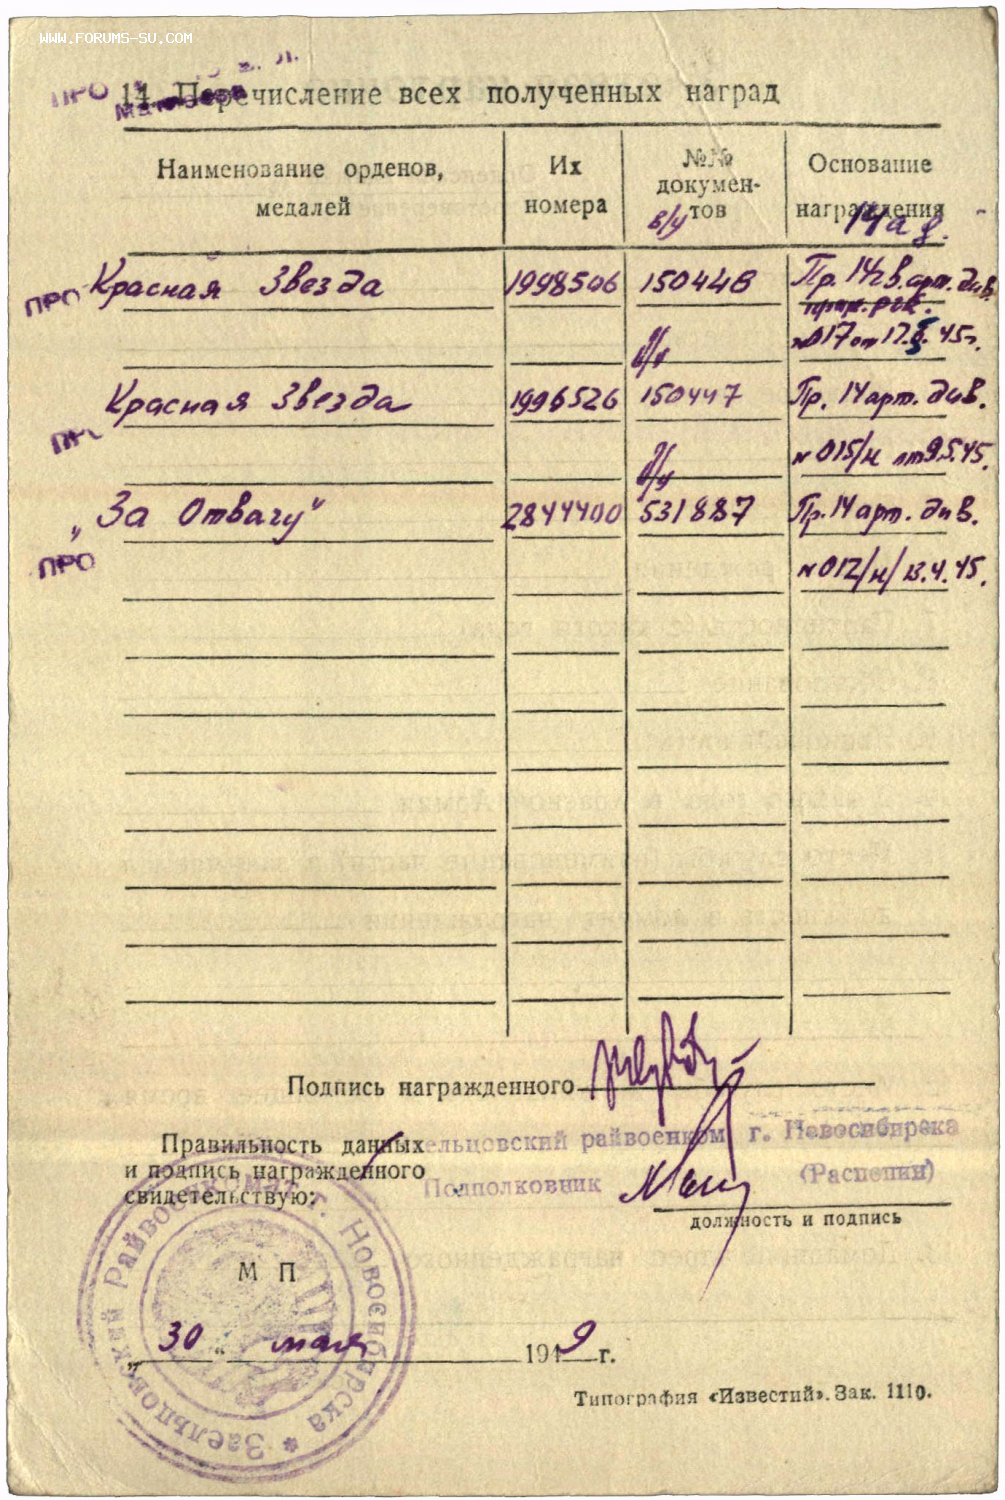 WWW.FORUMS-SU.COM
ПРО
14. Перечисление всех полученных наград
Наименование орденов, медалей
Их номера
№№ документов
Основание награждения
в/у
14 а д.
ПРО
Красная Звезда 1998506 150448 Пр. 14 гв. арт. див.
№017 от 17. 45г.
в/у
Красная Звезда 1996526 150447 Пр. 14 арт. див.
№015/н от 9.5.45.
в/у
„За Отвагу" 2844400 531887 Пр. 14 арт. див.
ПРО
№012/н/ 13.4.45.
Подпись награжденного
Правильность данных
и подпись награжденного
свидетельствую:
ельцовский райвоенком г. Новосибирска
Подполковник (Распопин)
должность и подпись
М П
Заельцовский Райвоенкомат г. Новосибирска
„30" мая 1949 г.
Типография «Известий». Зак. 1110.